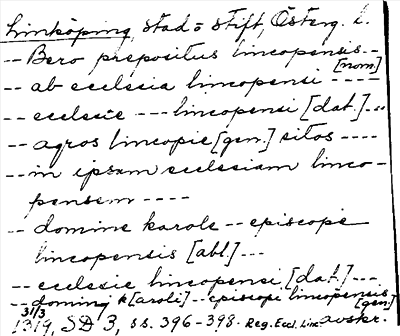 Linköping, stad o stift, Österg. l.
-- Bero prepositus lincopensis --
[nom.]
-- ab ecclesia lincopensi ----
-- ecclesie --- lincopensi [dat.] --
-- agros lincopie [gen.] sitos ----
-- in ipsam ecclesiam linco-
pensem ----
-- domine karole -- episcope
lincopensis [abl.] ---
-- ecclesie lincopensi [dat.] ---
-- dominj k[aroli] -- episcopi lincopensis
[gen.]
31/3
1319, SD 3, ss. 396-398. Reg. Eccl. Linc. avskr.